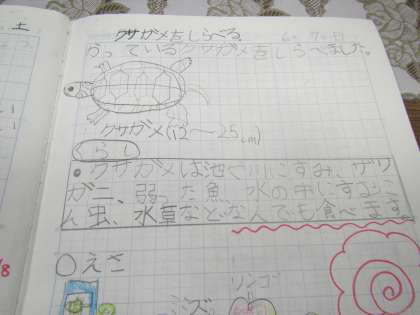 土
クサガメをしらべる 6月7日(
かっているクサガメをしらべました。
クサガメ(12〜25cm)
らし
●クサガメは池や川にすみ、ザリ
ガニ、弱った魚、水の中にすむこ
ん虫、水草などなんでも食べます
○えさ
リンゴ
ミミズ。
/8